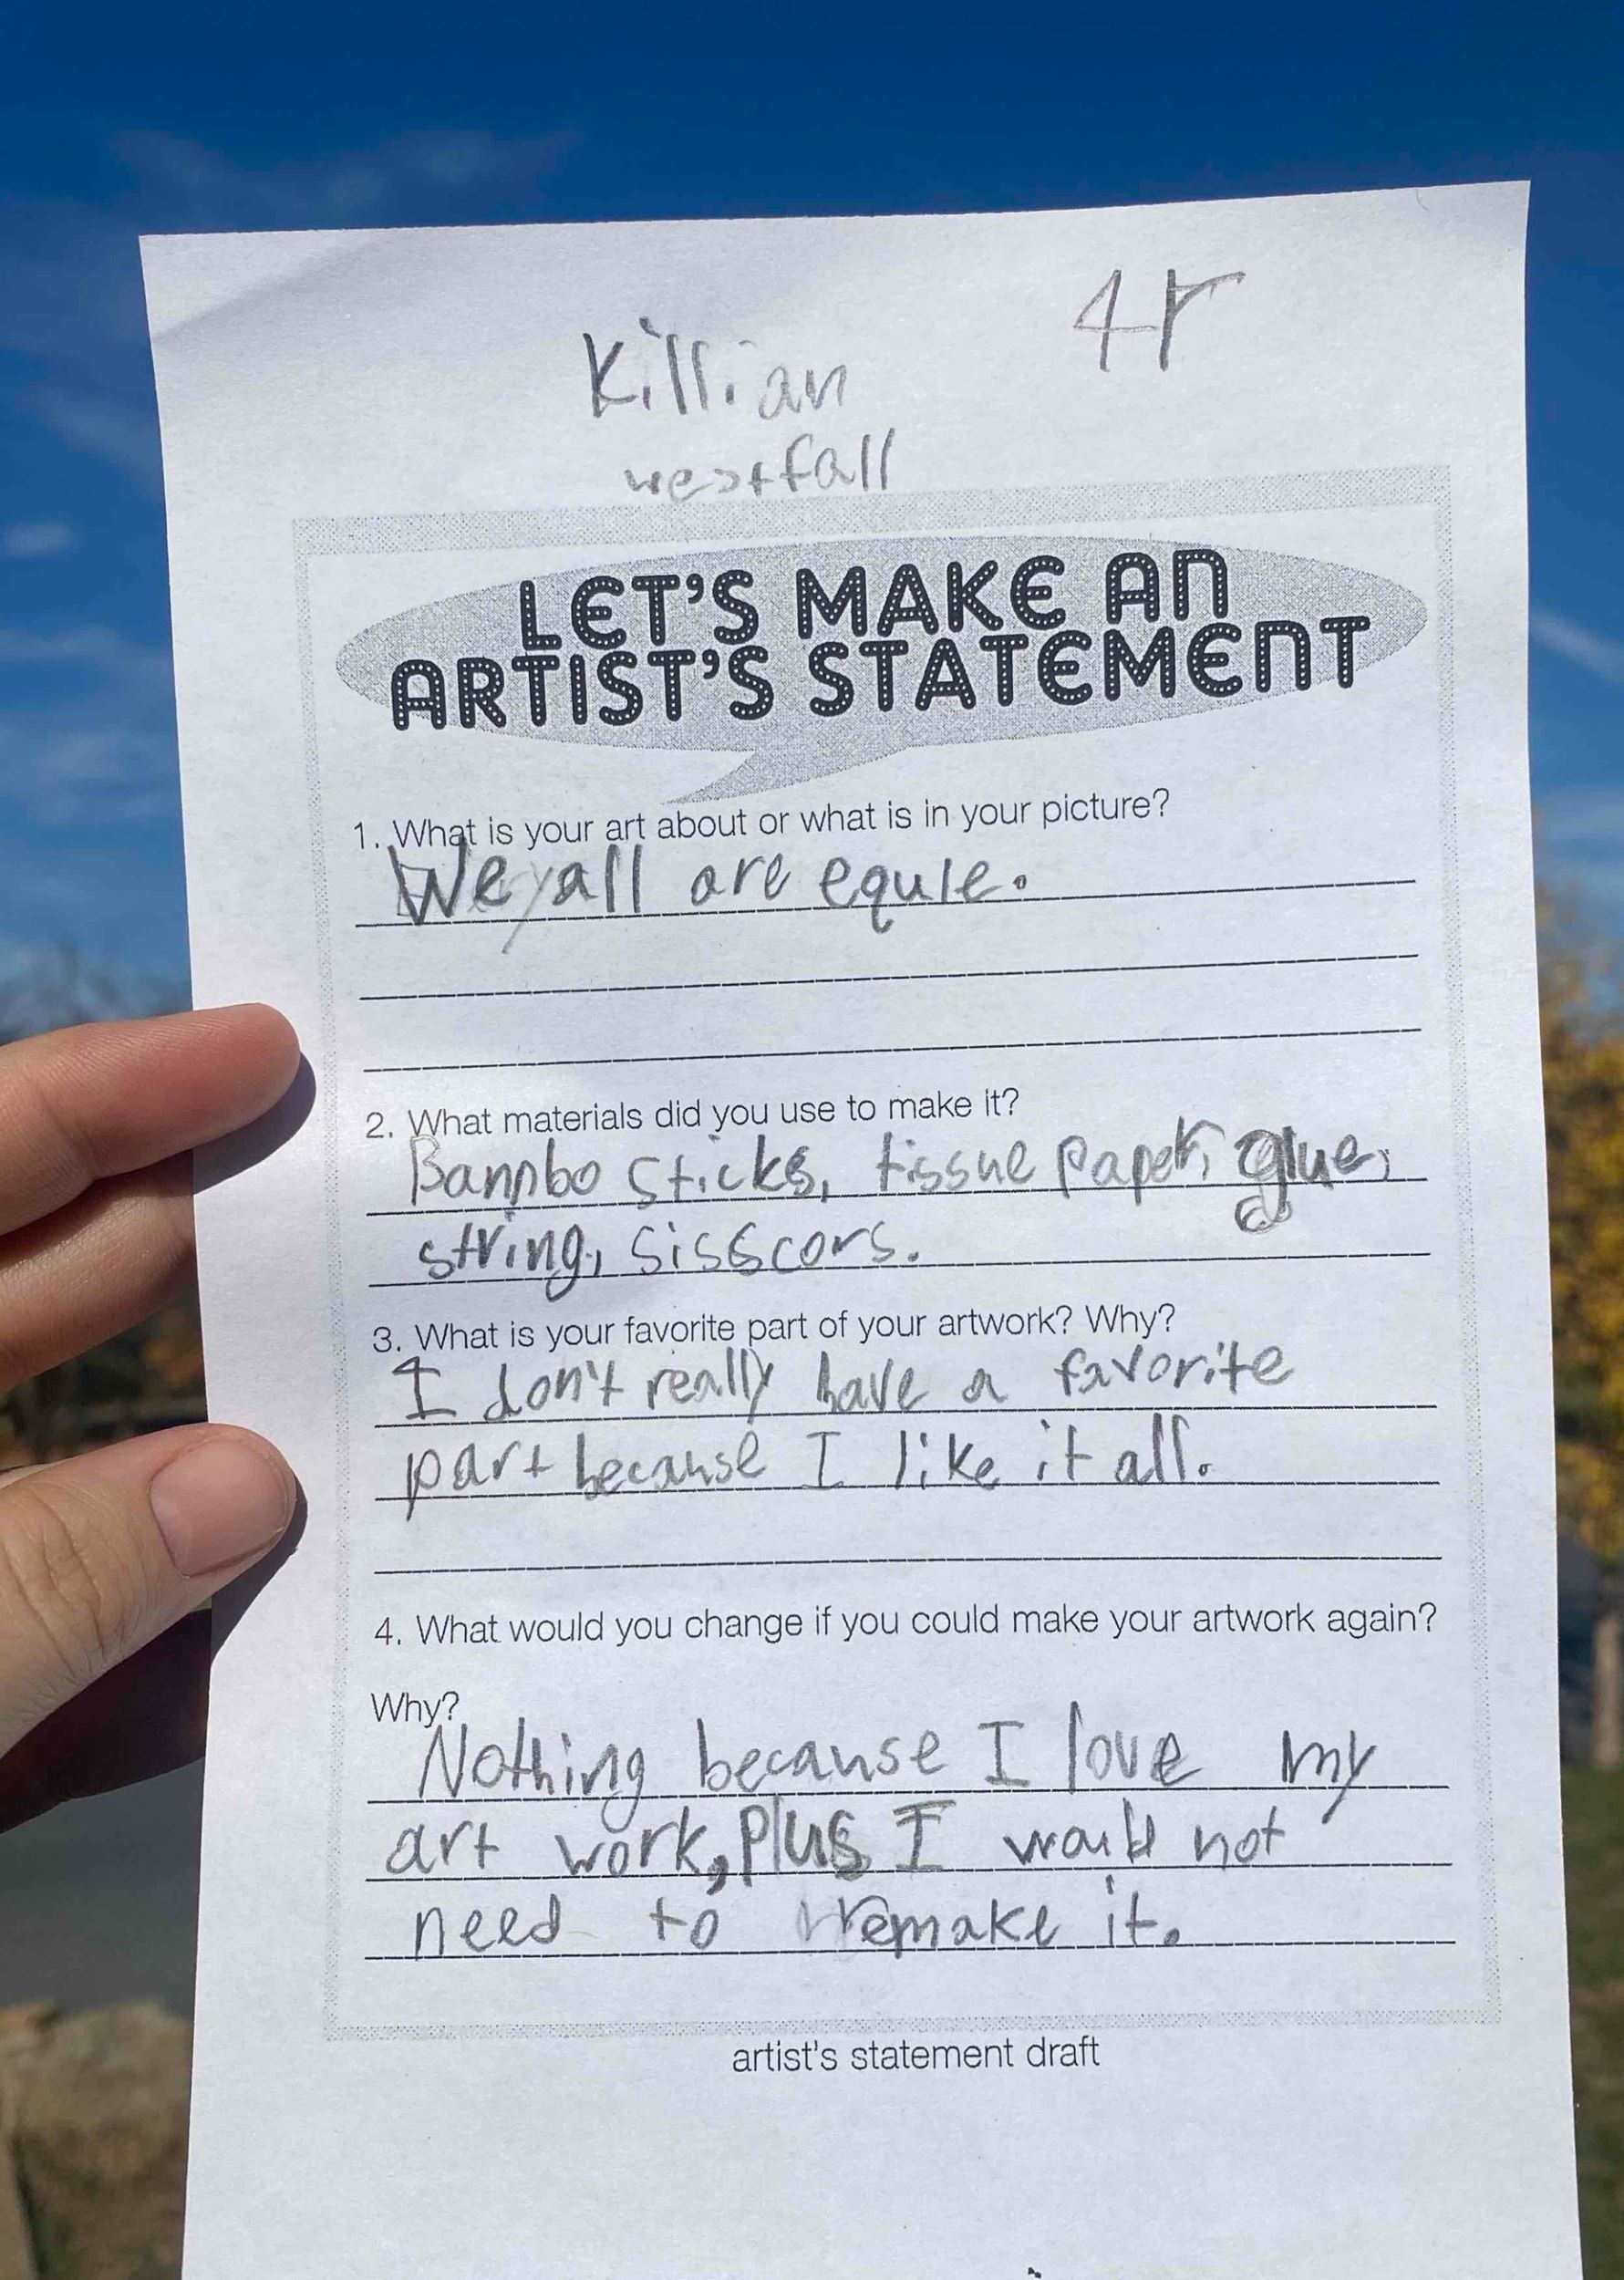 Killian 4r
westfall
LET'S MAKE AN
ARTIST'S STATEMENT
1. What is your art about or what is in your picture?
We all are equle.
2. What materials did you use to make it?
Bannbo sticks, tissue paper, glue,
string, sisscors.
3. What is your favorite part of your artwork? Why?
I don't really have a favorite
part because I like it all.
4. What would you change if you could make your artwork again?
Why?
Nothing because I love my
art work, plus I would not
need to remake it.
artist's statement draft